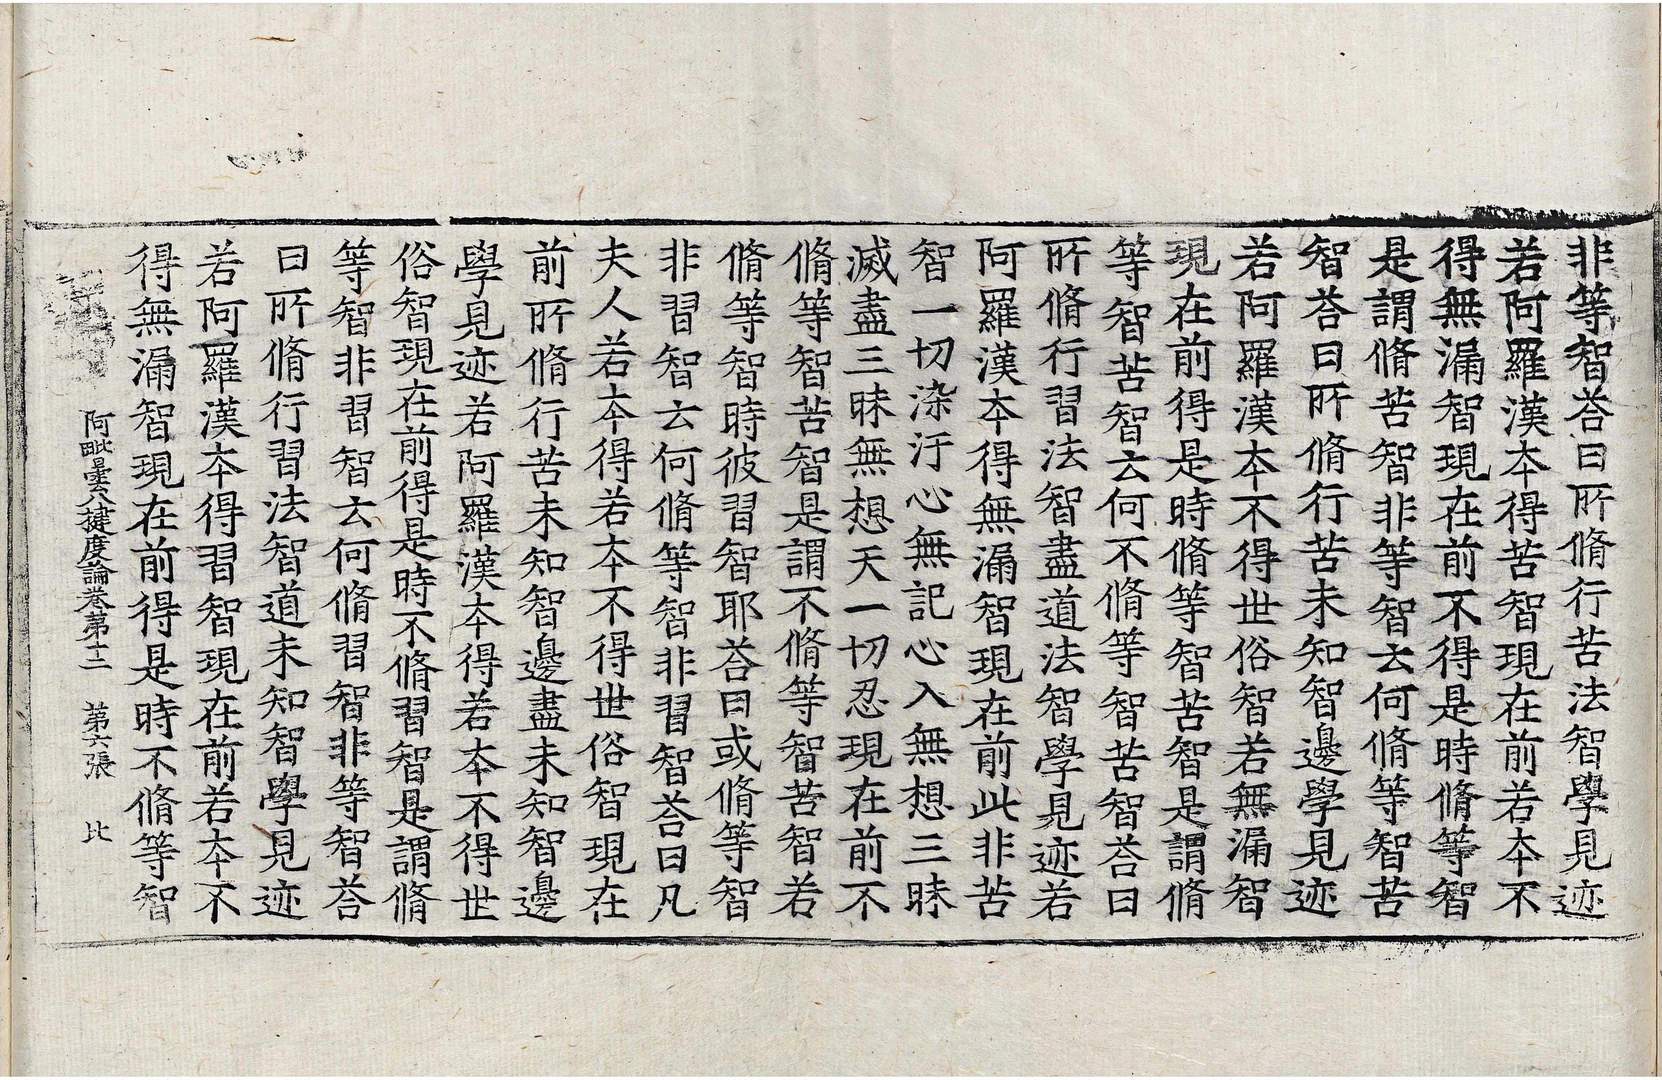 非等智荅曰所脩行苦法智學見迹
若阿羅漢夲得苦智現在前若夲不
得無漏智現在前不得是時脩等智
是謂脩苦智非等智云何脩等智苦
智荅曰所脩行苦未知智邊學見迹
若阿羅漢夲不得世俗智若無漏智
現在前得是時脩等智苦智是謂脩
等智苦智云何不脩等智苦智荅曰
所脩行習法智盡道法智學見迹若
阿羅漢夲得無漏智現在前此非苦
智一切染汙心無記心入無想三昧
滅盡三昧無想天一切忍現在前不
脩等智苦智是謂不脩等智苦智若
脩等智時彼習智耶荅曰或脩等智
非習智云何脩等智非習智荅曰凡
夫人若夲得若夲不得世俗智現在
前所脩行苦未知智邊盡未知智邊
學見迹若阿羅漢夲得若夲不得世
俗智現在前得是時不脩習智是謂脩
等智非習智云何脩習智非等智荅
曰所脩行習法智道未知智學見迹
若阿羅漢夲得習智現在前若夲不
得無漏智現在前得是時不脩等智
阿毗曇八揵度論卷第十二 第六張 比